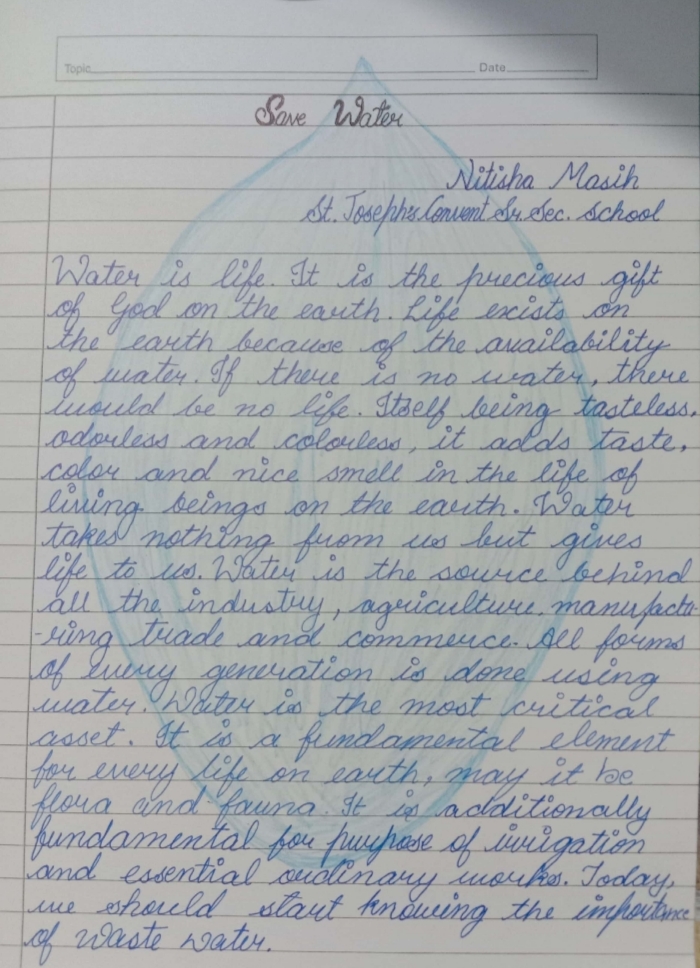 Topic Date
Save Water
Nitisha Masih
St. Joseph's Convent Sr. Sec. School
Water is life. It is the precious gift
of God on the earth. Life exists on
the earth because of the availability
of water. If there is no water, there
would be no life. Itself being tasteless,
odorless and colorless, it adds taste,
color and nice smell in the life of
living beings on the earth. Water
takes nothing from us but gives
life to us. Water is the source behind
all the industry, agriculture, manufactu
-ring trade and commerce. All forms
of every generation is done using
water. Water is the most critical
asset. It is a fundamental element
for every life on earth, may it be
flora and fauna. It is additionally
fundamental for purpose of irrigation
and essential ordinary works. Today,
we should start knowing the importance
of waste water.